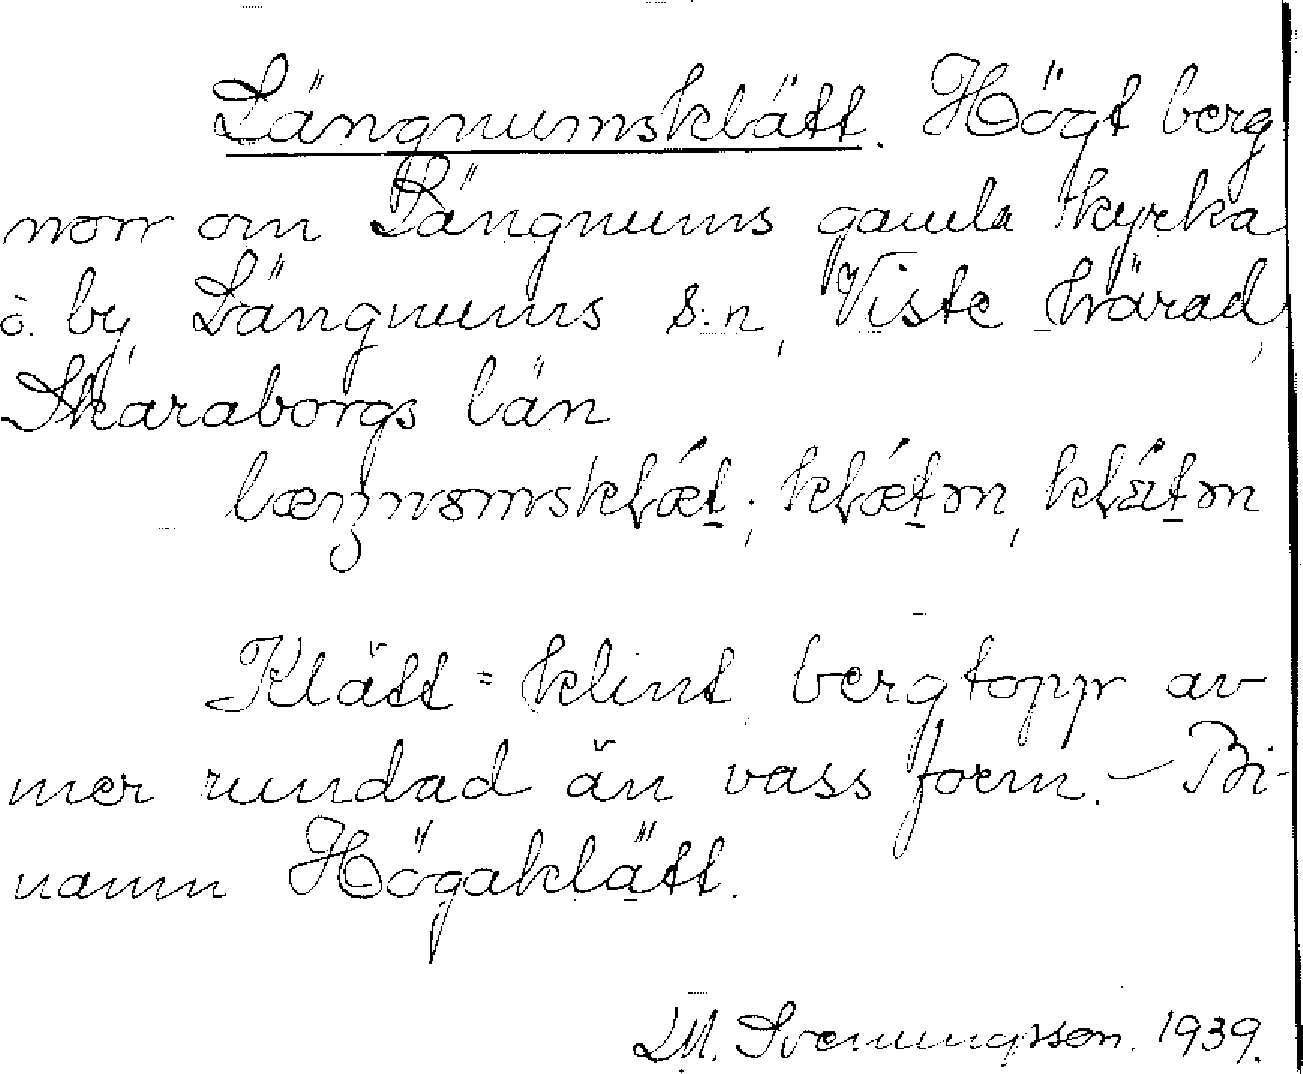 Längnumsklätt. Högt berg
norr om Längnums gamla kyrka
o. by, Längnums s:n, Viste härad,
Skaraborgs län
Klätt = klint, bergtopp av
mer rundad än vass form. - Bi-
namn Högaklätt.
M. Svenungsson. 1939.